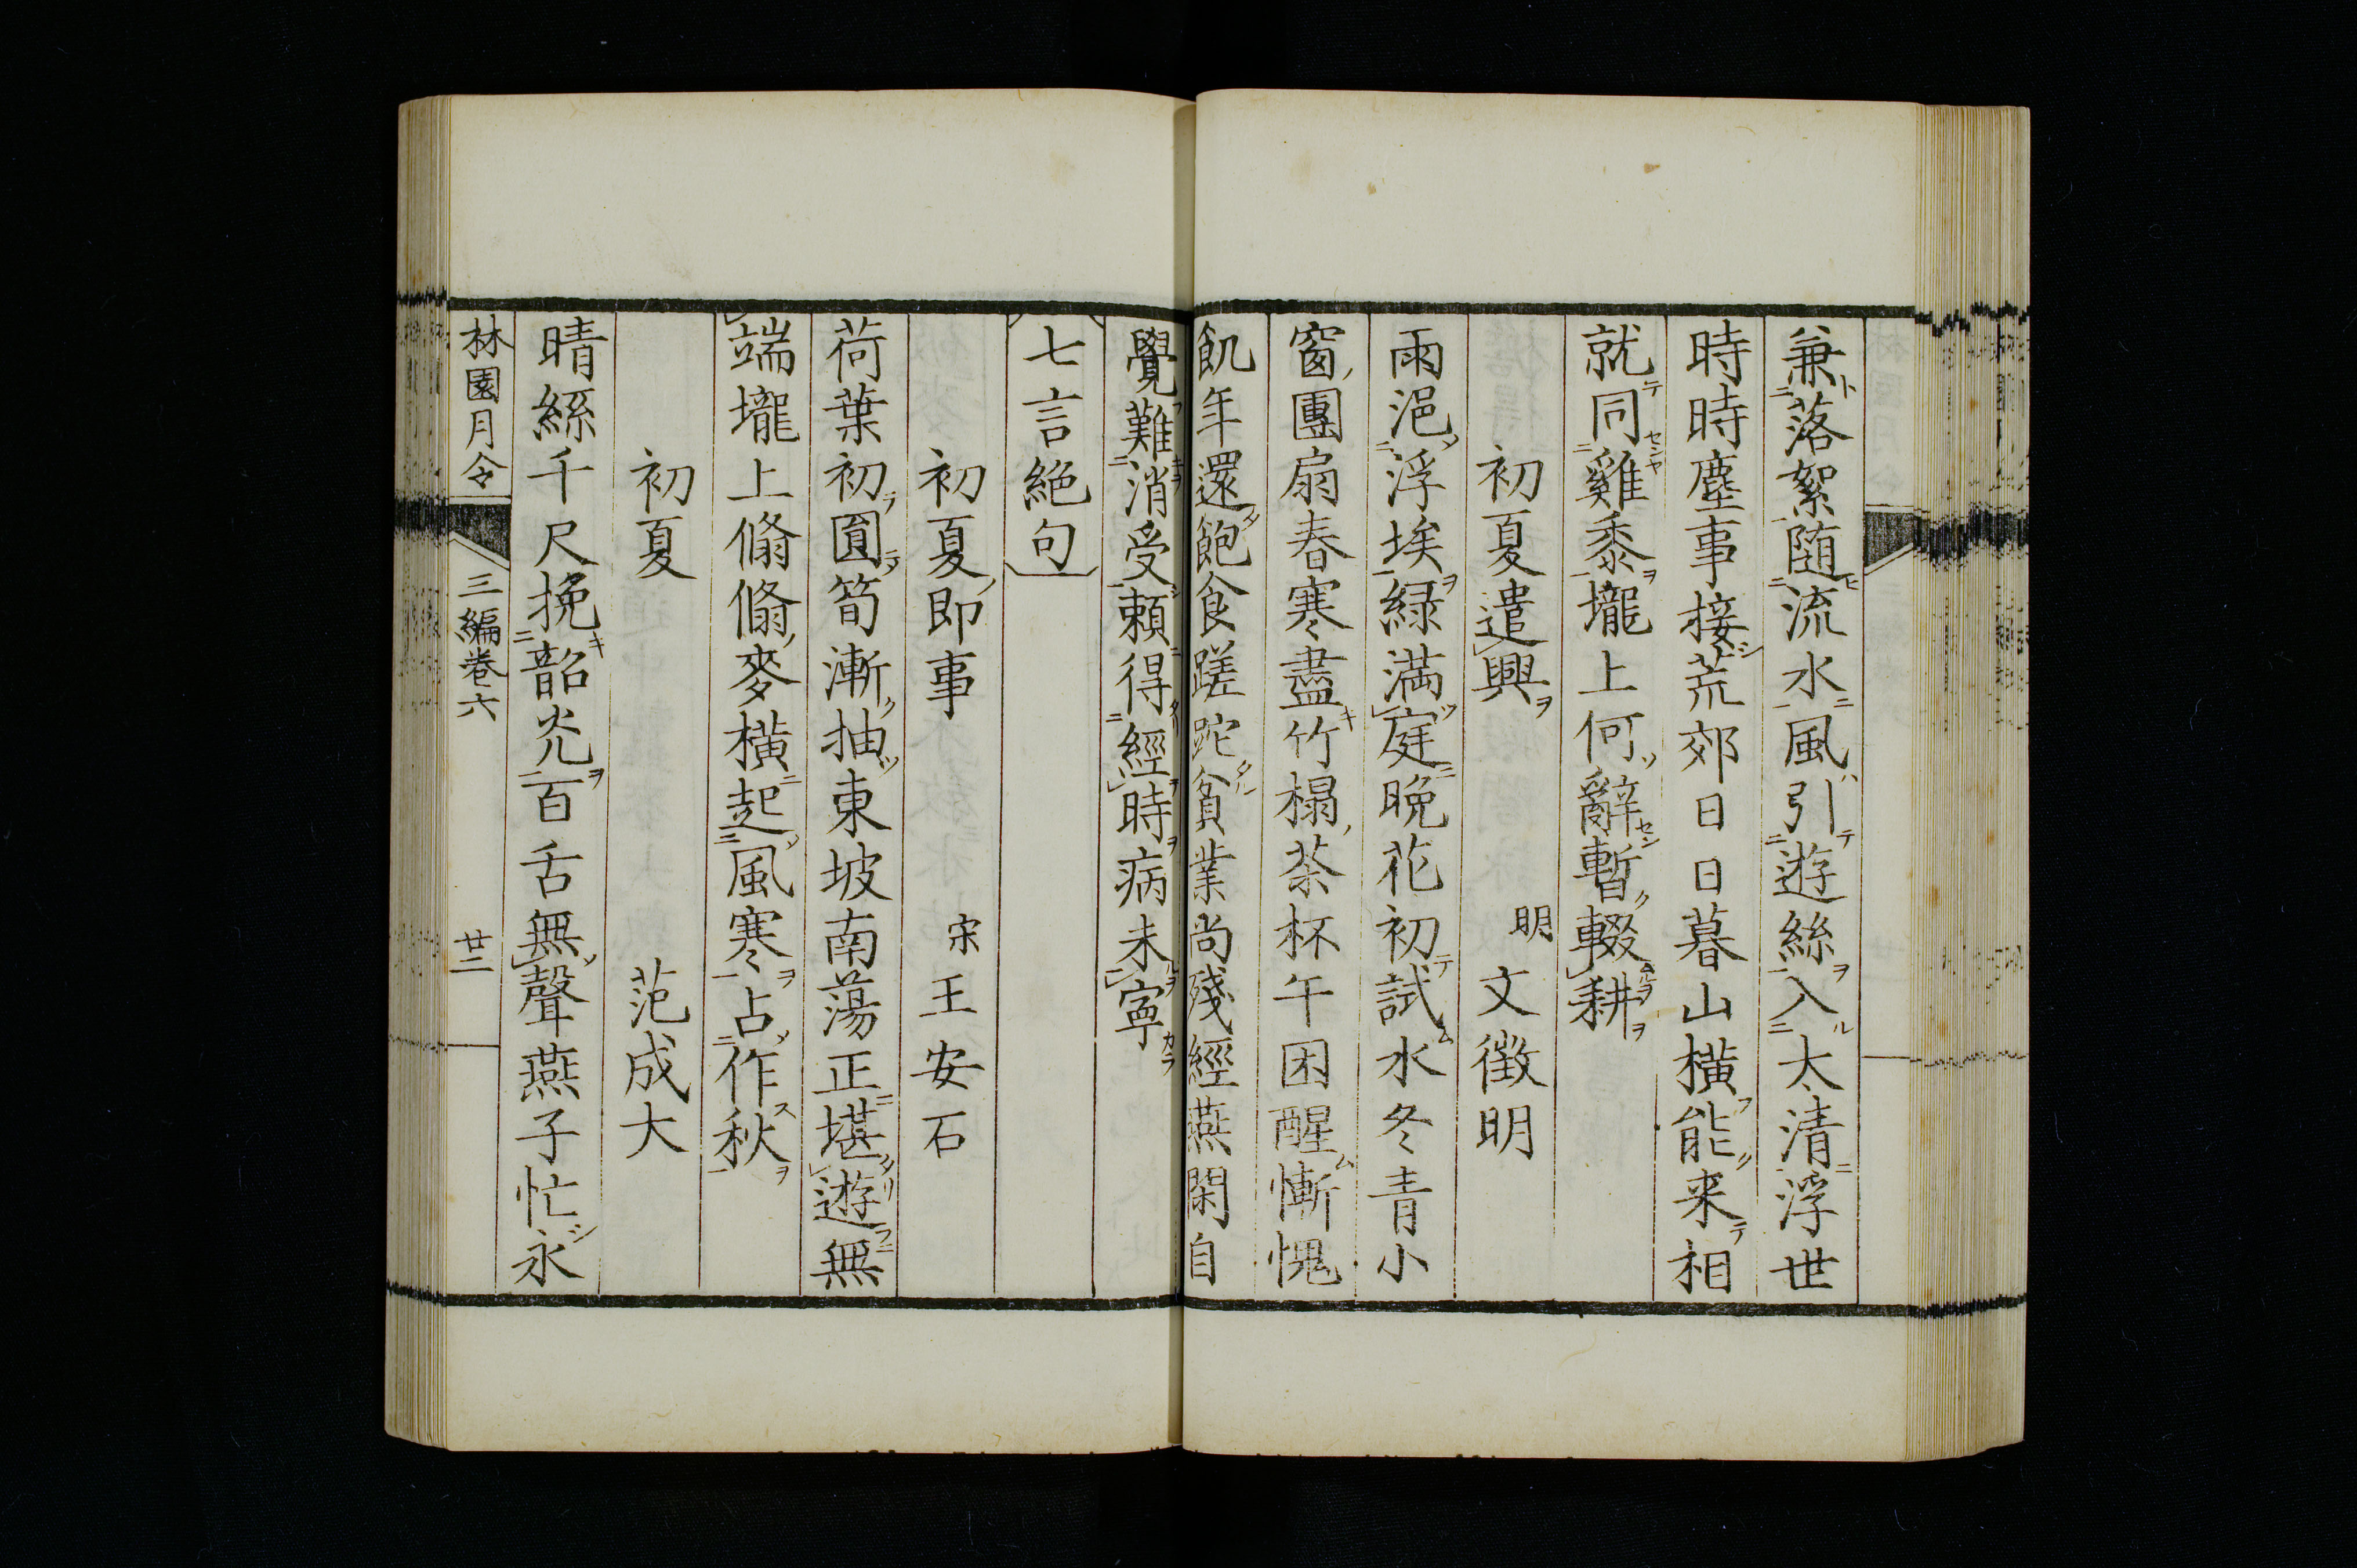 兼落絮隨流水風引遊絲入太清浮世
時時塵事接荒郊日日暮山橫能来相
就同雞黍壠上何辭暫輟耕
初夏遣興 明 文徵明
雨浥浮埃綠満庭晩花初試水冬青小
窗團扇春寒盡竹榻茶杯午困醒慚愧
飢年還飽食蹉跎貧業尚殘經燕閑自
覺難消受頼得經時病未寧
七言絶句
初夏即事 宋 王安石
荷葉初圓筍漸抽東坡南蕩正堪遊無
端壠上翛翛麥橫起風寒占作秋
初夏 范成大
晴絲千尺挽韶光百舌無聲燕子忙永
林園月令 三編巻六 廿三